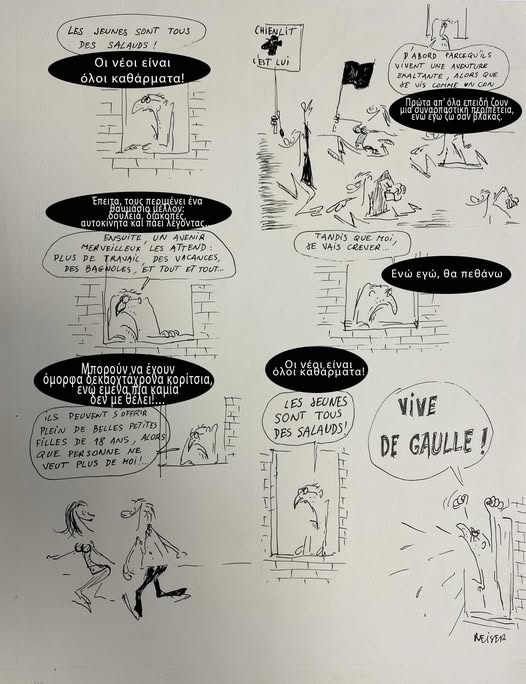 LES JEUNES SONT TOUS
DES SALAUDS !
Οι νέοι είναι
όλοι καθάρματα!
CHIENLIT
C'EST LUI
D'ABORD PARCEQU'ILS
VIVENT UNE AVENTURE
EXALTANTE, ALORS QUE
JE VIS COMME UN CON
Πρώτα απ' όλα επειδή ζουν
μια συναρπαστική περιπέτεια,
ενώ εγώ ζω σαν βλάκας.
Έπειτα, τους περιμένει ένα
θαυμάσιο μέλλον:
δουλειά, διακοπές,
αυτοκίνητα και πάει λέγοντας.
ENSUITE, UN AVENIR
MERVEILLEUX LES ATTEND :
PLUS DE TRAVAIL, DES VACANCES,
DES BAGNOLES, ET TOUT ET TOUT...
TANDIS QUE MOI,
JE VAIS CREVER...
Ενώ εγώ, θα πεθάνω
Μπορούν να έχουν
όμορφα δεκαοχτάχρονα κορίτσια,
ενώ εμένα πια καμία
δεν με θέλει!...
ILS PEUVENT S'OFFRIR
PLEIN DE BELLES PETITES
FILLES DE 18 ANS, ALORS
QUE PERSONNE NE
VEUT PLUS DE MOI !...
Οι νέοι είναι
όλοι καθάρματα!
LES JEUNES
SONT TOUS
DES SALAUDS!
VIVE
DE GAULLE !
REISER